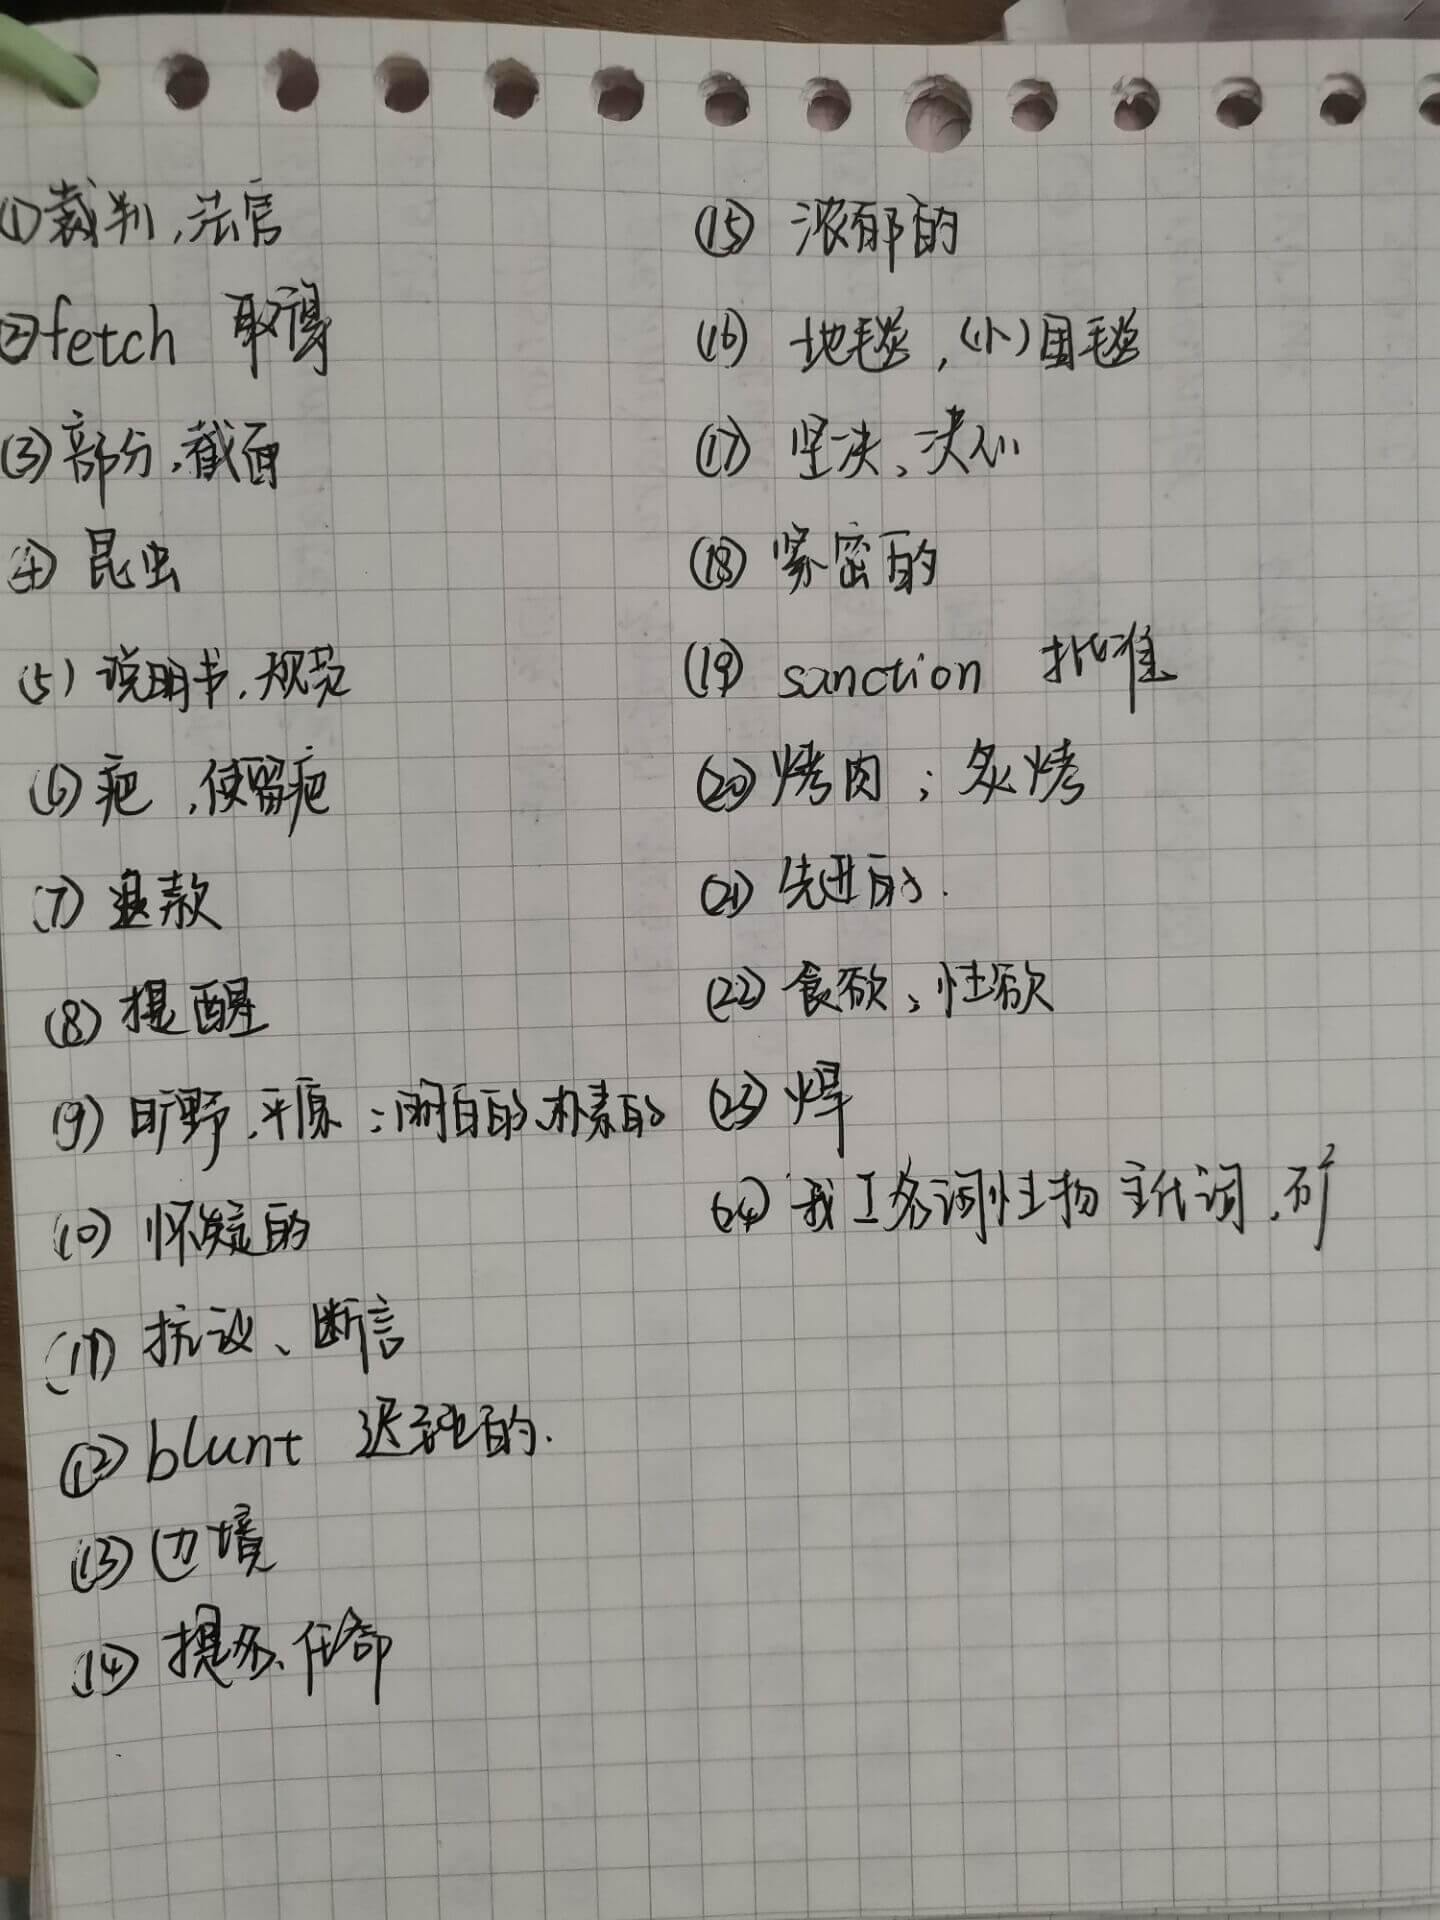 (1) 裁判,法官
(2) fetch 取得
(3) 部分,截面
(4) 昆虫
(5) 说明书,规范
(6) 疤,使留疤
(7) 退款
(8) 提醒
(9) 旷野,平原;明白的,朴素的
(10) 怀疑的
(11) 抗议、断言
(12) blunt 迟钝的.
(13) 边境
(14) 提名、任命
(15) 浓郁的
(16) 地毯,(小)围毯
(17) 坚决、决心
(18) 紧密的
(19) sanction 批准
(20) 烤肉;炙烤
(21) 先进的.
(22) 食欲、性欲
(23) 焊
(24) 我工名词性物主代词,矿